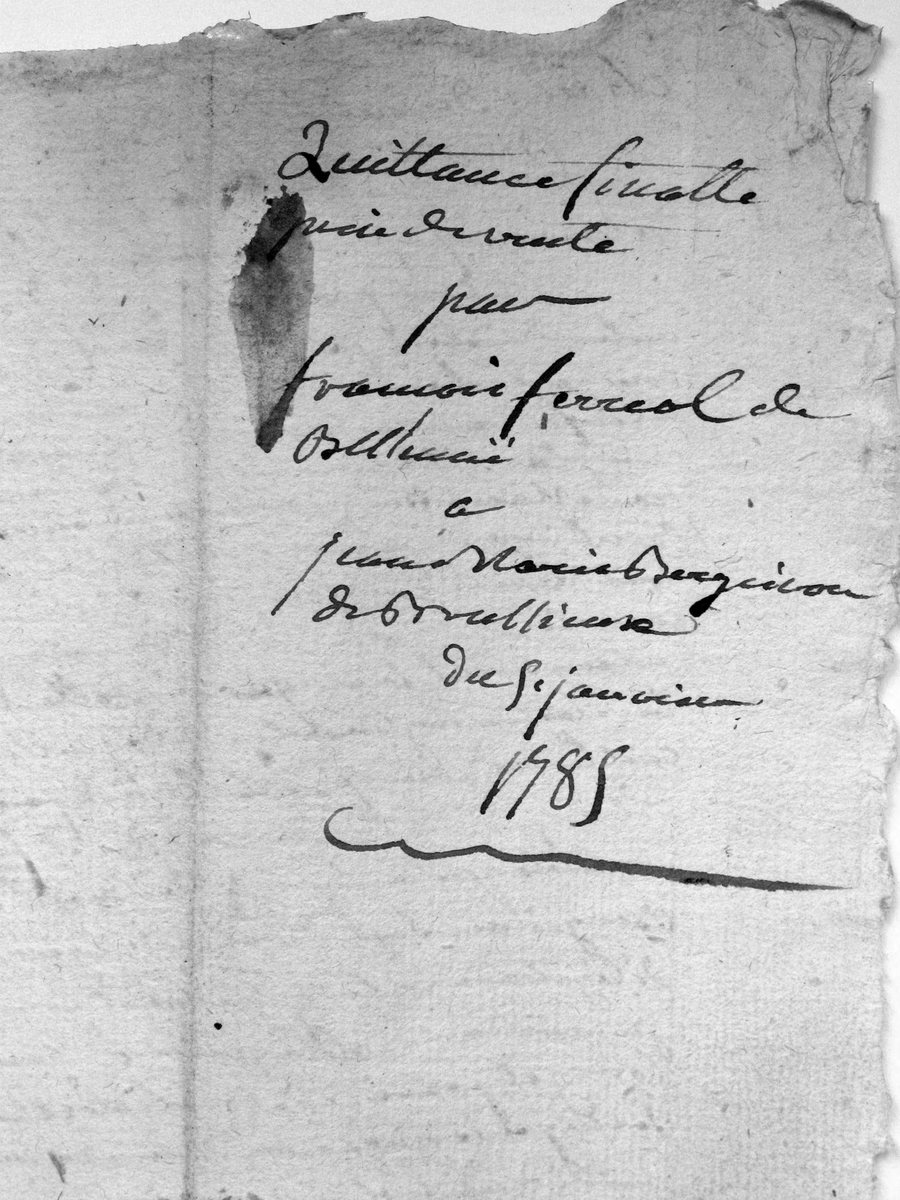 Quittance finalle
prix de vente
par
francois ferreol de
a
jean Marie Berguiron
de Brullieux
du 5e janvier
1785